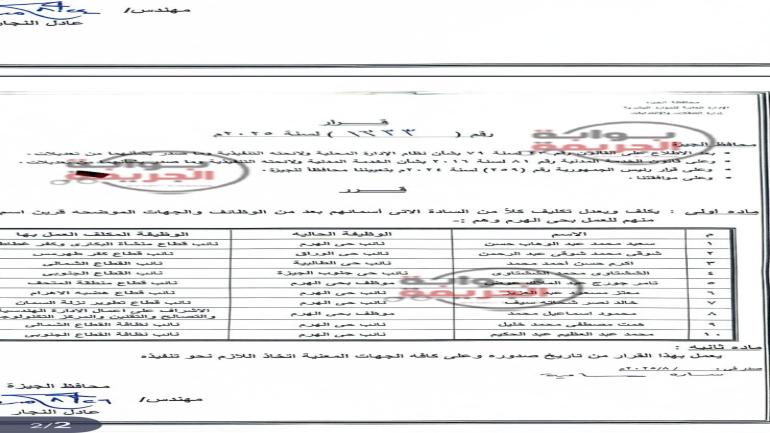 مهندس/
عادل النجار
محافظة الجيزة
قرار
رقم ( ١٦٣٣ ) لسنة ٢٠٢٥م
بوابة
الجريمة
محافظ الجيزة
بعد الاطلاع على القانون رقم ٤٣ لسنة ٧٩ بشأن نظام الإدارة المحلية ولائحته التنفيذية وما صدر بشأنهما من تعديلات .
وعلى قانون الخدمة المدنية رقم ٨١ لسنة ٢٠١٦ بشأن الخدمة المدنية ولائحته التنفيذية وما
وعلى قرار رئيس الجمهورية رقم (٢٥٩) لسنة ٢٠٢٤م بتعييننا محافظاً للجيزة .
وعلى موافقتنا .
قــرر
ماده أولى : يكلف ويعدل تكليف كلاً من السادة الاتي أسمائهم بعد من الوظائف والجهات الموضحه قرين اسم
منهم للعمل بحي الهرم وهم :-
م الاســم الوظيفة الحاليه الوظيفة المكلف العمل بها
١ سعيد محمد عبد الوهاب حسن نائب حى الهرم نائب قطاع منشأة البكارى وكفر غطاط
٢ شوقى محمد شوقى عبد الرحمن نائب حى الوراق نائب قطاع كفر طهرمس
٣ اكرم حسن احمد محمد نائب حى الطالبية نائب القطاع الشمالى
٤ الششتاوى محمد الششتاوى نائب حى جنوب الجيزة نائب القطاع الجنوبى
٥ تامر جورج عبد الملاك عوض موظف بحى الهرم نائب قطاع منطقة المتحف
٦ محمد مسعد عبد العزيز نائب حى الهرم نائب قطاع هضبه الاهرام
٧ خالد نصر شحاته سيف نائب حى الهرم نائب قطاع تطوير نزلة السمان
٨ محمود اسماعيل محمد موظف بحى الهرم الاشراف على اعمال الادارة الهندسية
والتصالح والتقنين والمركز التكنولوجى
٩ مصطفى محمد خليل نائب حى الهرم نائب نظافة القطاع الشمالى
١٠ محمد عبد العظيم عبد الحكيم نائب حى الهرم نائب نظافة القطاع الجنوبى
ماده ثانيه :
يعمل بهذا القرار من تاريخ صدوره وعلى كافه الجهات المعنية اتخاذ اللازم نحو تنفيذه
صدر في : / ٨ /٢٠٢٥م
محافظ الجيزة
مهندس/
عادل النجار
2/2